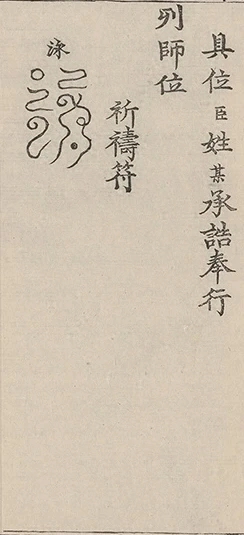 具位臣姓某承誥奉行
列師位
祈禱符
泳